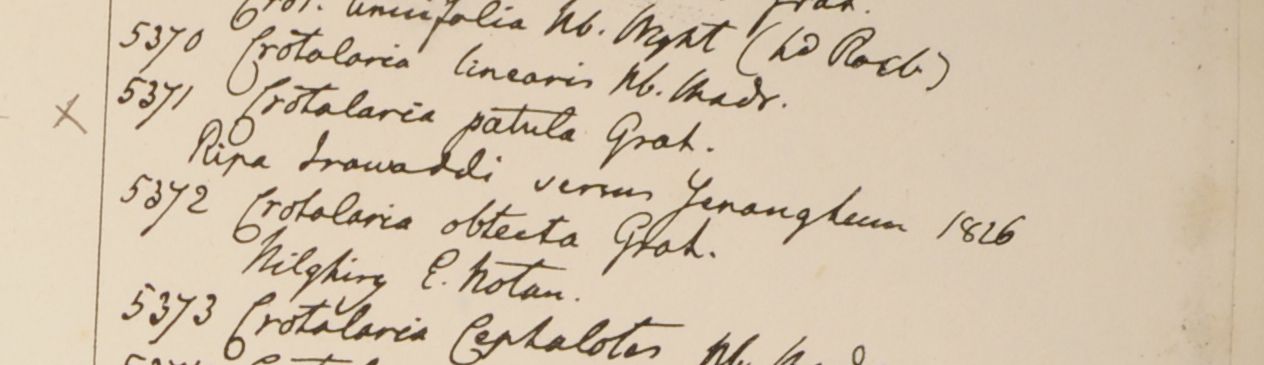 Crot. linifolia Hb. Wight (hd Roxb)
5370 Crotalaria linearis Hb. Madr.
5371 Crotalaria patula Grah.
Ripa Irawaddi versus Yenangheum 1826
5372 Crotalaria obtecta Grah.
Nilghiry E. Noton.
5373 Crotalaria Cephalotes Hb.